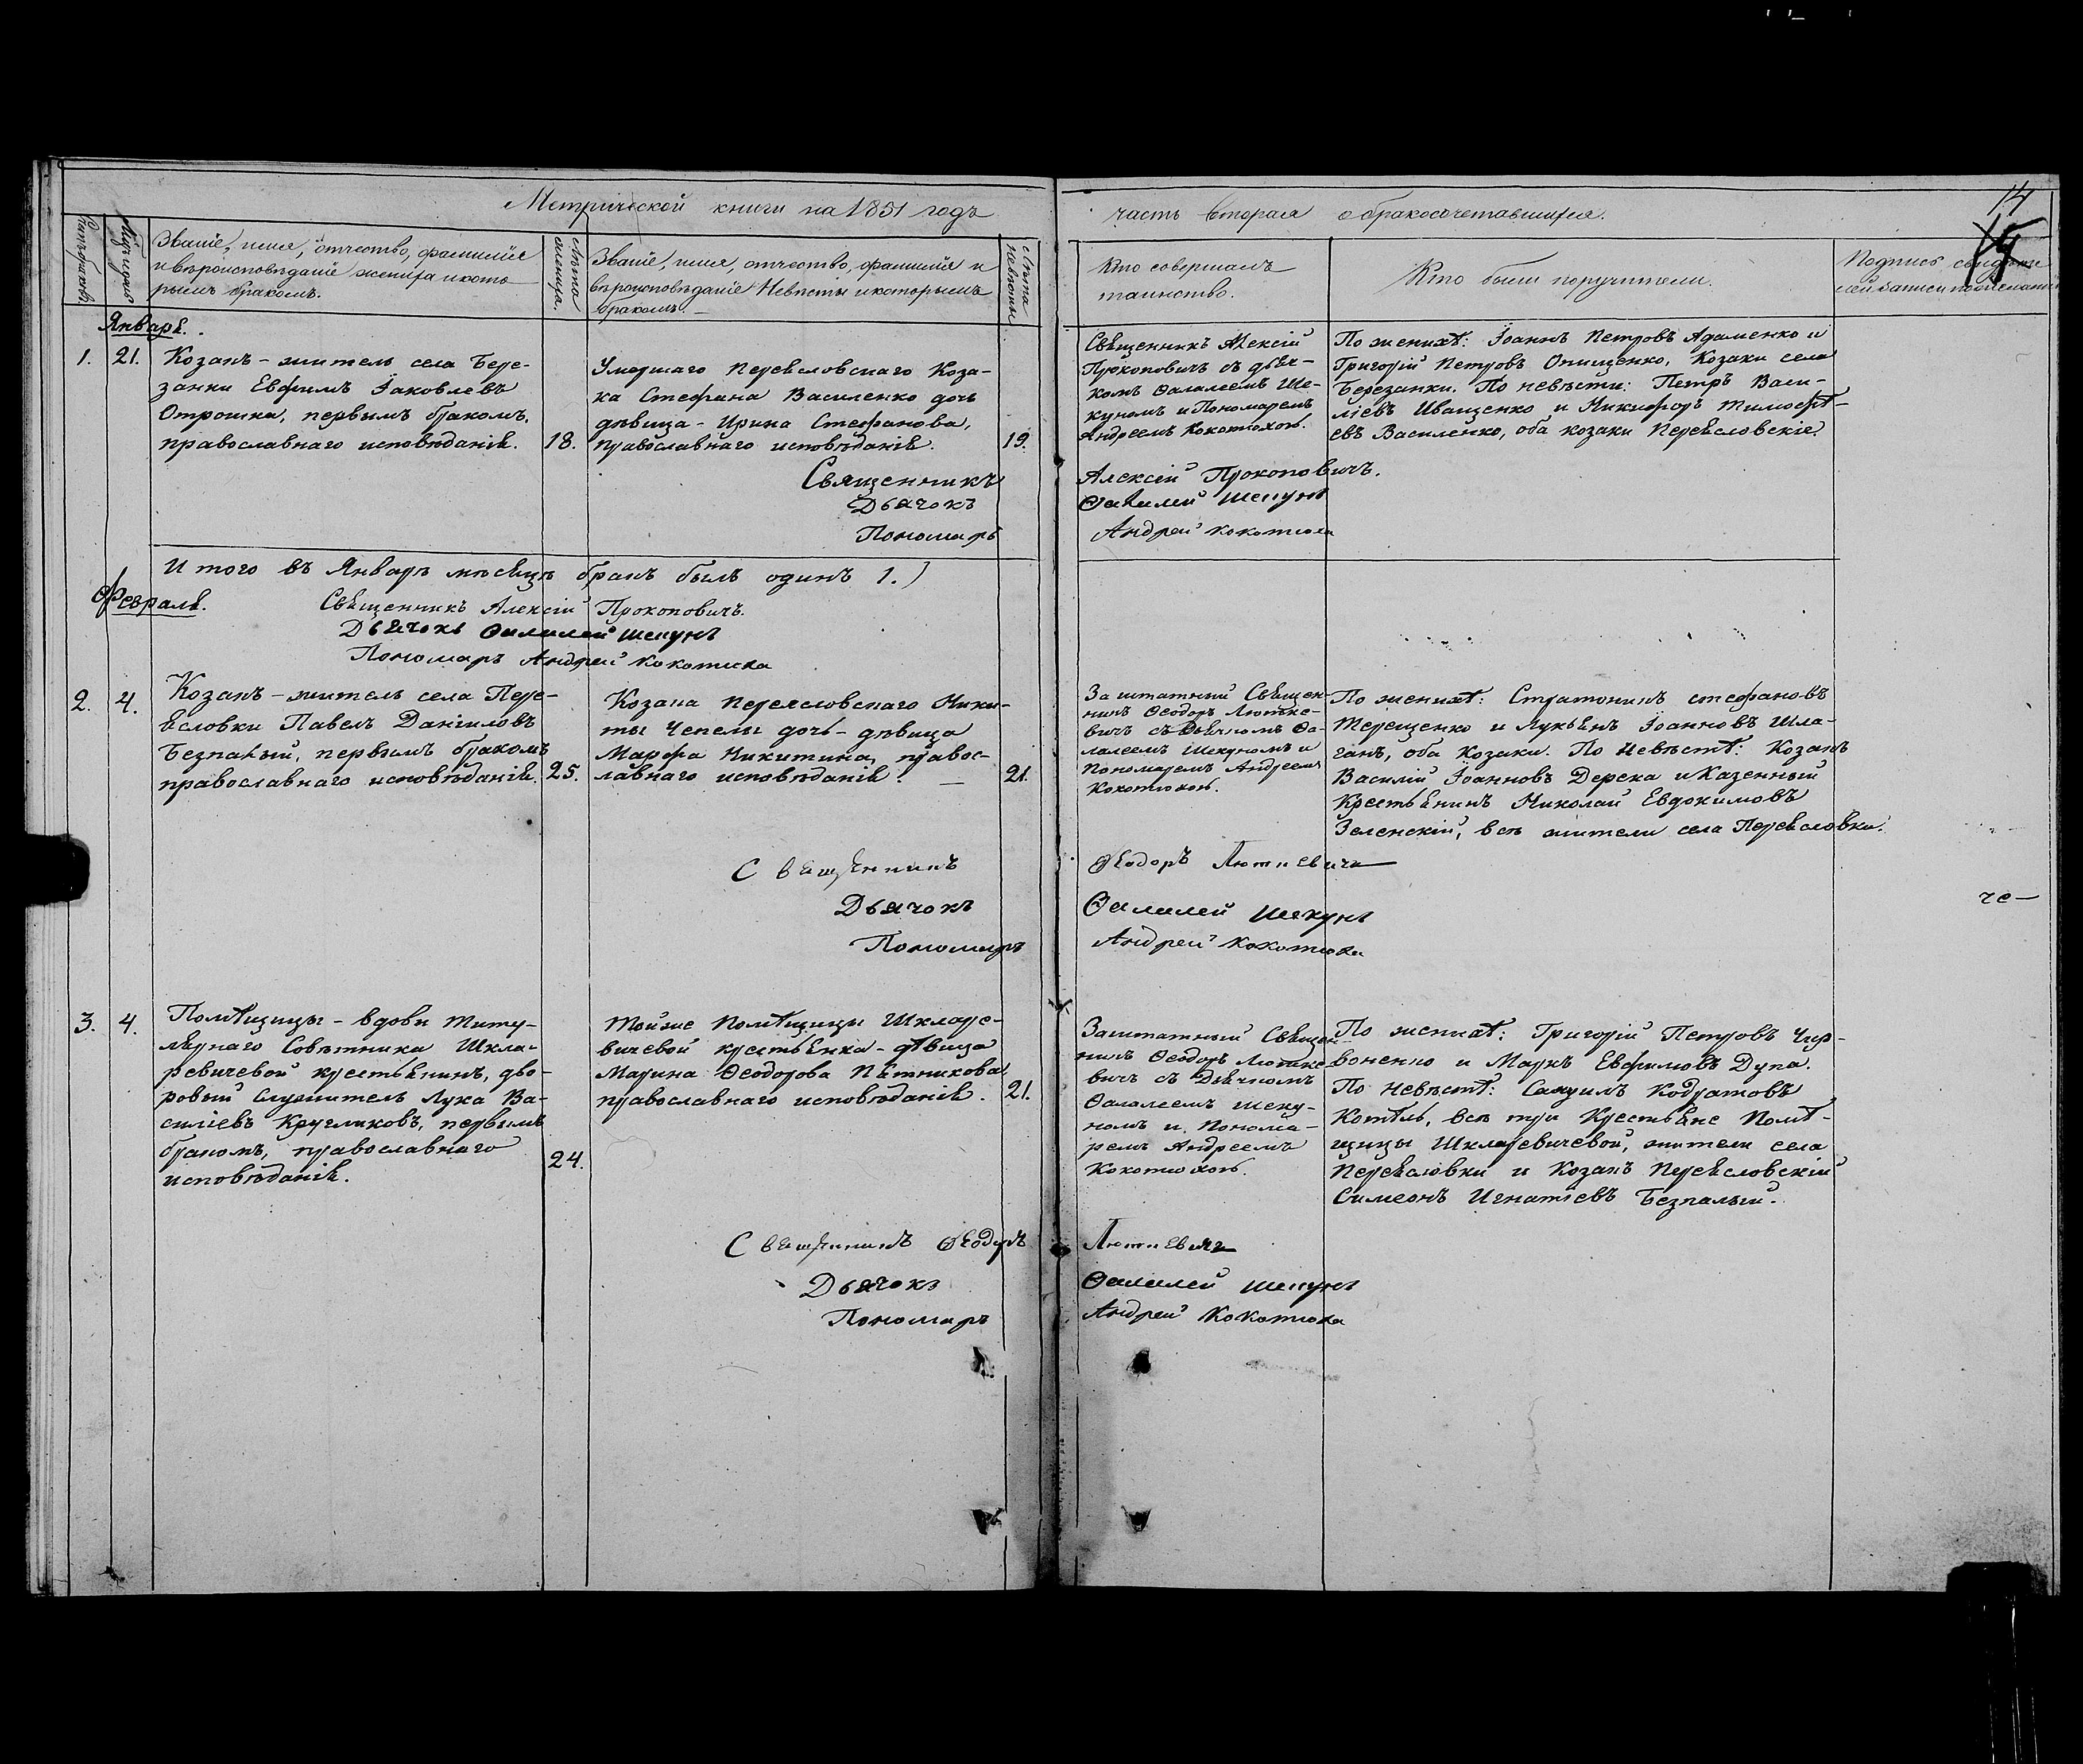 Метрической книги на 1851 годъ
часть вторая о бракосочетавшихся.
14
Счетъ браковъ
Мѣсяцъ и день
Званіе, имя, отчество, фамилія
и вѣроисповѣданіе жениха и кото-
рымъ бракомъ.
Лѣта
жениха.
Званіе, имя, отчество, фамилія и
вѣроисповѣданіе Невѣсты и которымъ
бракомъ. —
Лѣта
невѣсты
Кто совершалъ
таинство.
Кто были поручители.
Подпись свидѣте
лей записи по желанію
Январь.
1. 21.
Козакъ - житель села Бере-
занки Евфимъ Іаковлевъ
Отрошка, первымъ бракомъ,
православнаго исповѣданія.
18.
Умершаго Переясловскаго Коза-
ка Стефана Василенко дочь
дѣвица - Ирина Стефанова,
православнаго исповѣданія.
19.
Священникъ Алексій
Прокоповичъ съ дьяч-
комъ Фалалеемъ Ше-
куномъ и Пономаремъ
Андреемъ Кокотюхою.
По женихѣ: Іоаннъ Петровъ Адаменко и
Григорій Петровъ Онищенко, Козаки села
Березанки. По невѣсти: Петръ Васи-
ліевъ Иващенко и Никифоръ Тимофѣ-
евъ Василенко, оба козаки Переясловскіе.
Священникъ Алексій Прокоповичъ.
Дьячокъ Фалалей Шекунъ
Пономарь Андрей Кокотюха
И того въ Январѣ мѣсяцѣ бракъ былъ одинъ 1.)
Февраль.
Священникъ Алексій Прокоповичъ.
Дьячокъ Фалалей Шекунъ
Пономарь Андрей Кокотюха
2. 4.
Козакъ - житель села Пере-
ясловки Павелъ Даніиловъ
Безпалый, первымъ бракомъ
православнаго исповѣданія.
25.
Козака Переясловскаго Ники-
ты Чепелы дочь - дѣвица
Марфа Никитина, правос-
лавнаго исповѣданія. —
21.
Заштатный Священ-
никъ Феодоръ Лютке-
вичъ съ Дьячкомъ Фа-
лалеемъ Шекуномъ и
Пономаремъ Андреемъ
Кокотюхою.
По женихѣ: Стратоникъ Стефановъ
Терещенко и Лукьянъ Іоанновъ Шла-
ганъ, оба Козаки. По Невѣстѣ: Козакъ
Василій Іоанновъ Дерека и Казенный
Крестьянинъ Николай Евдокимовъ
Зеленскій, всѣ жители села Переясловки.
Священникъ Феодоръ Люткевичъ
Дьячокъ Фалалей Шекунъ
Пономарь Андрей Кокотюха
че—
3. 4.
Помѣщицы - вдовы Титу-
лярнаго Совѣтника Шкла-
ревичевой крестьянинъ, дво-
ровый Служитель Лука Ва-
силіевъ Кругликовъ, первымъ
бракомъ, православнаго
исповѣданія.
24.
Тойже Помѣщицы Шкларе-
вичевой крестьянка - дѣвица
Марина Феодорова Пѣтникова
православнаго исповѣданія.
21.
Заштатный Священ-
никъ Феодоръ Лютке
вичъ съ Дьячкомъ
Фалалеемъ Шеку-
номъ и Понома-
ремъ Андреемъ
Кокотюхою.
По женихѣ: Григорій Петровъ Чер-
воненко и Маркъ Евфимовъ Дупа.
По Невѣстѣ: Самуилъ Кодратовъ
Котѣль, всѣ три Крестьяне Помѣ-
щицы Шкларевичевой, жители села
Переясловки и Козакъ Переясловскій
Симеонъ Игнатіевъ Безпалый.
Священникъ Феодоръ Люткевичъ
Дьячокъ Фалалей Шекунъ
Пономарь Андрей Кокотюха